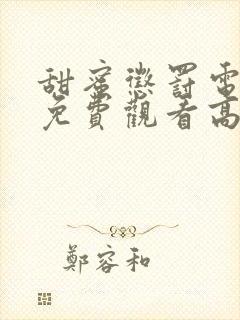 甜蜜懲罰電
免費觀看高
鄭容和